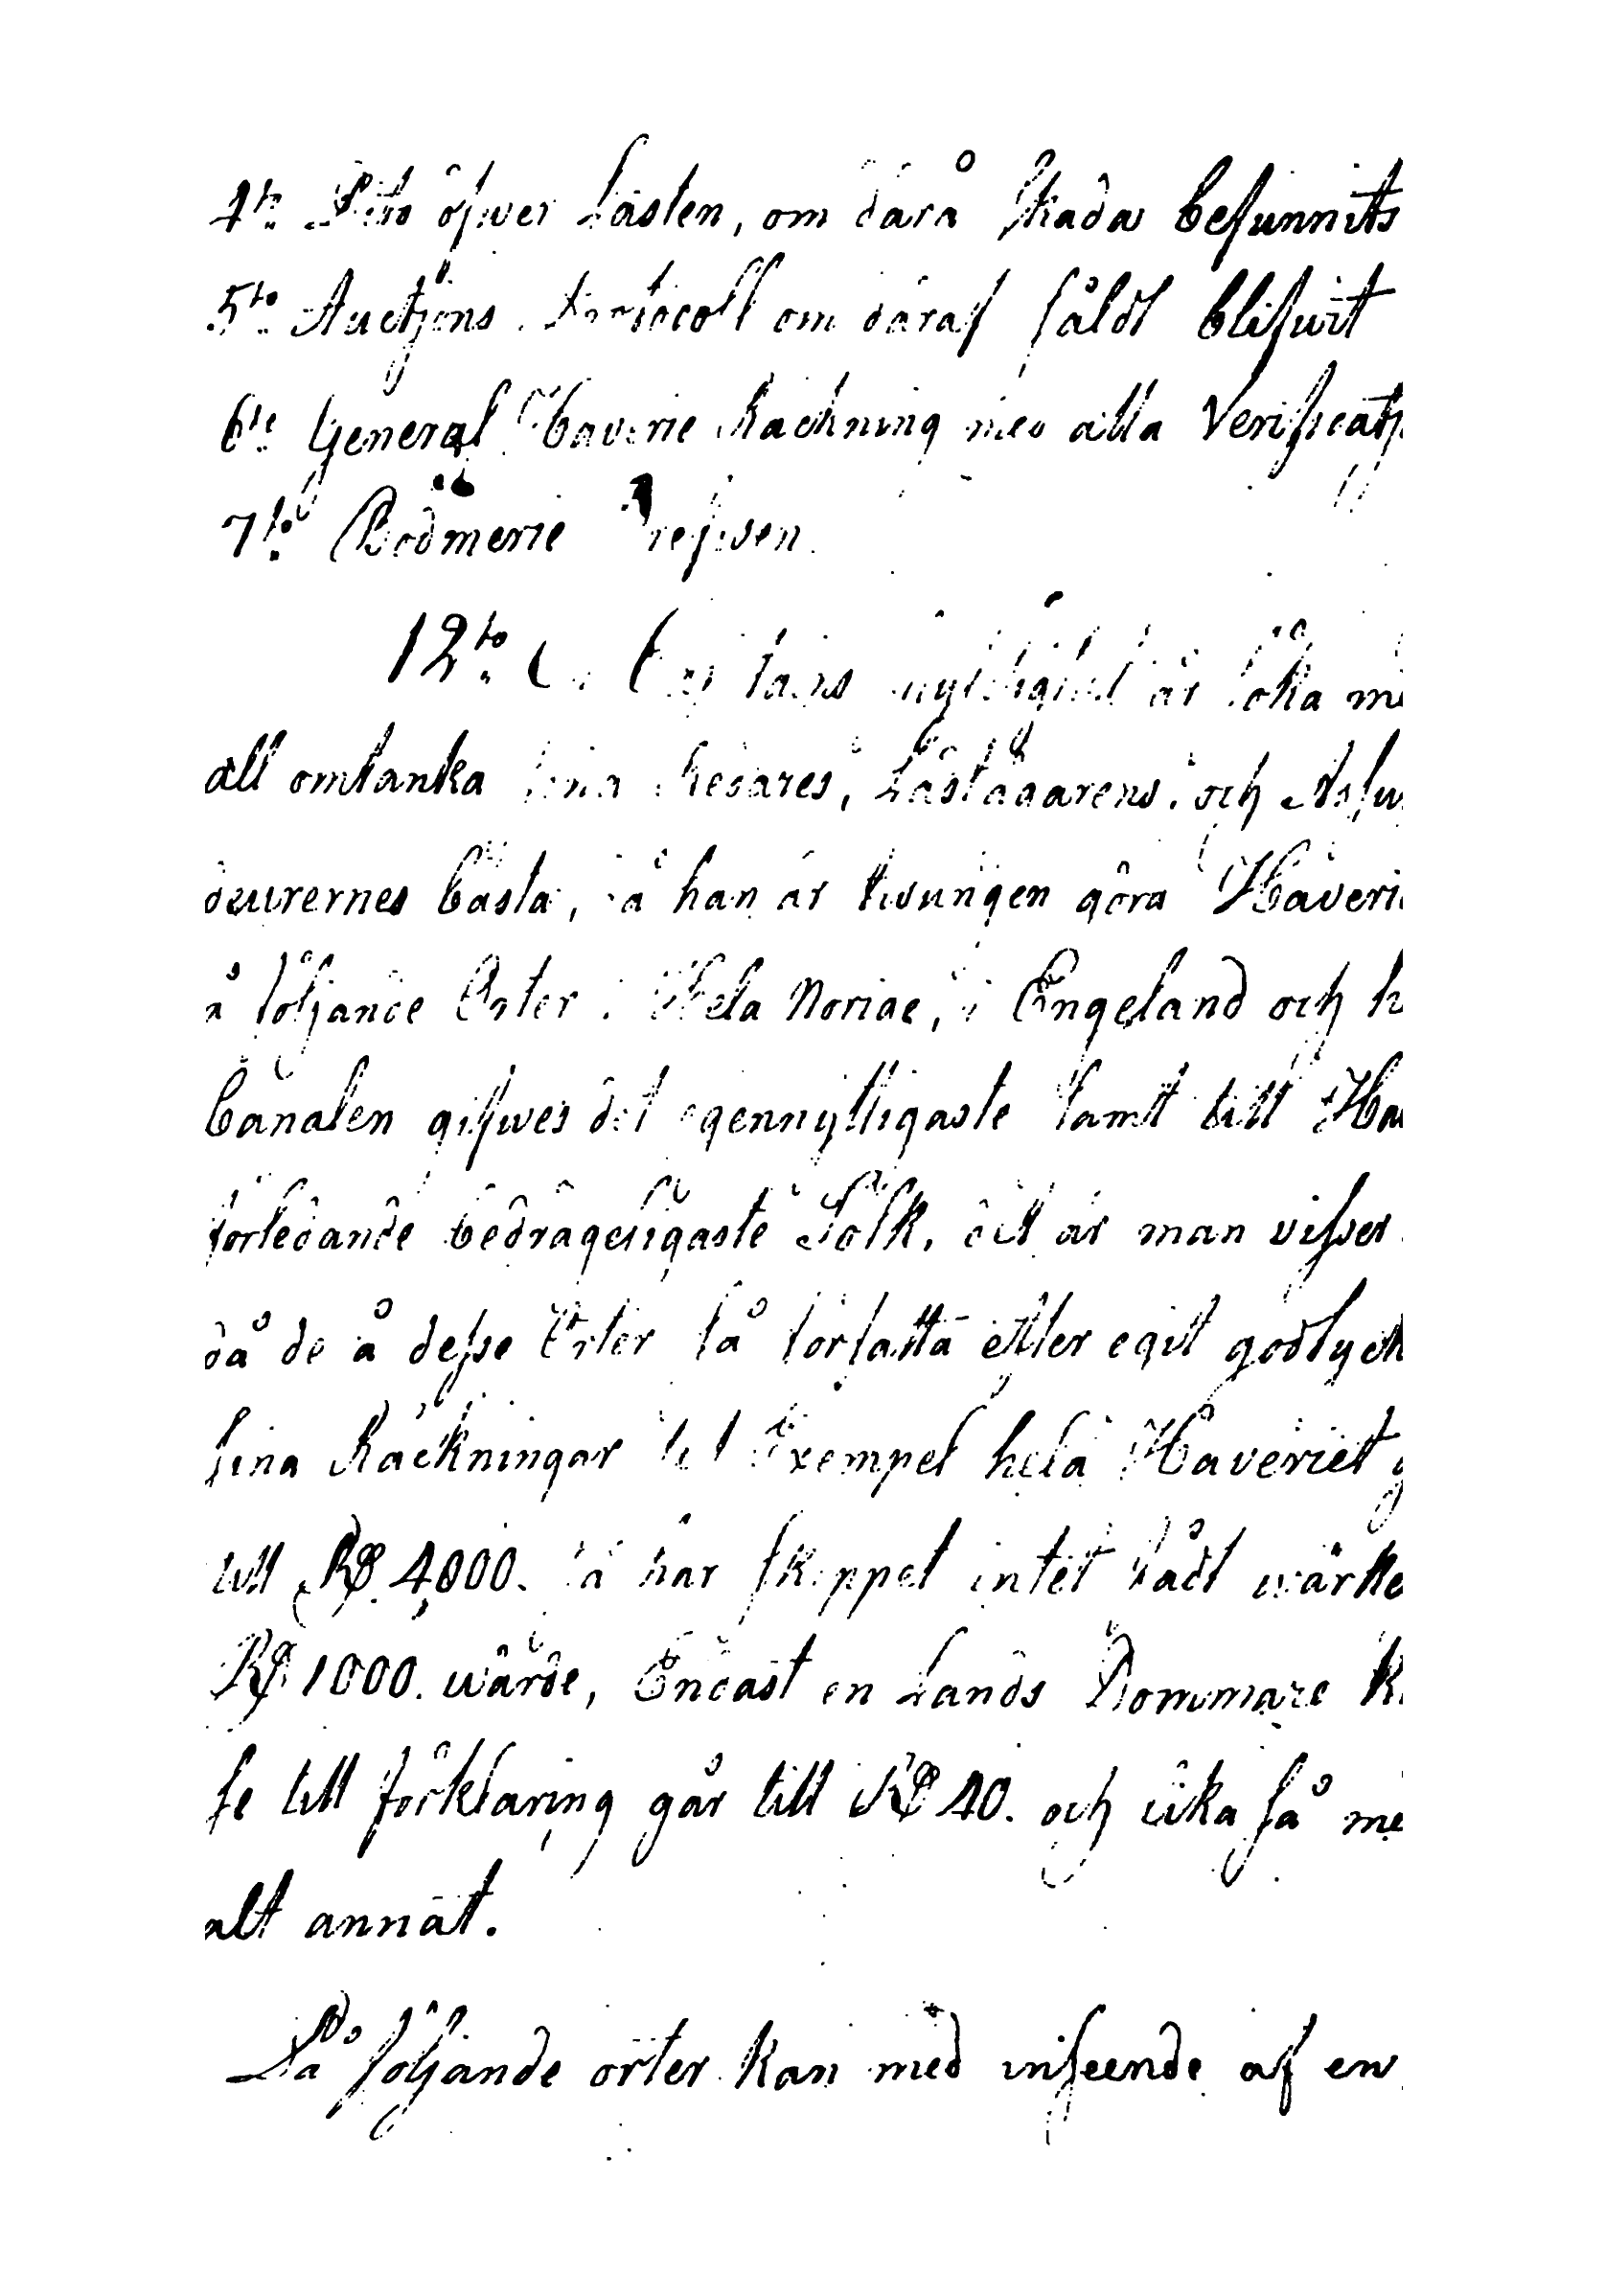 4to Dito öfwer Lasten, om därå skada befunnits
5to Auctions Protocoll om däraf såldt blifwit
6te General Haverie Räckning med alla Verificat
7to Bodmerie Brefwen.
12to En Capitains skyldighet är söka me
all omtanka sina Redares, Lastägarens och Assu
deurernes bästa, då han är twungen göra Haveri
å följande Orter. Hela Norige, i Engeland och
Canalen gifwes det egennyttigaste samt till Ha
förledande bedrageligaste Folk, det är man visser
då de å desse Orter få författa efter egit godtyck
sina Räckningar til Exempel hela Haveriet g
till Rd 4000. så har skeppet intet hådt wärke
Rd 1000. wärde, Endast en Lands Dommare
se till förklaring går till Rd 40. och lika så me
alt annat.
På följande orter kan med inseende af en